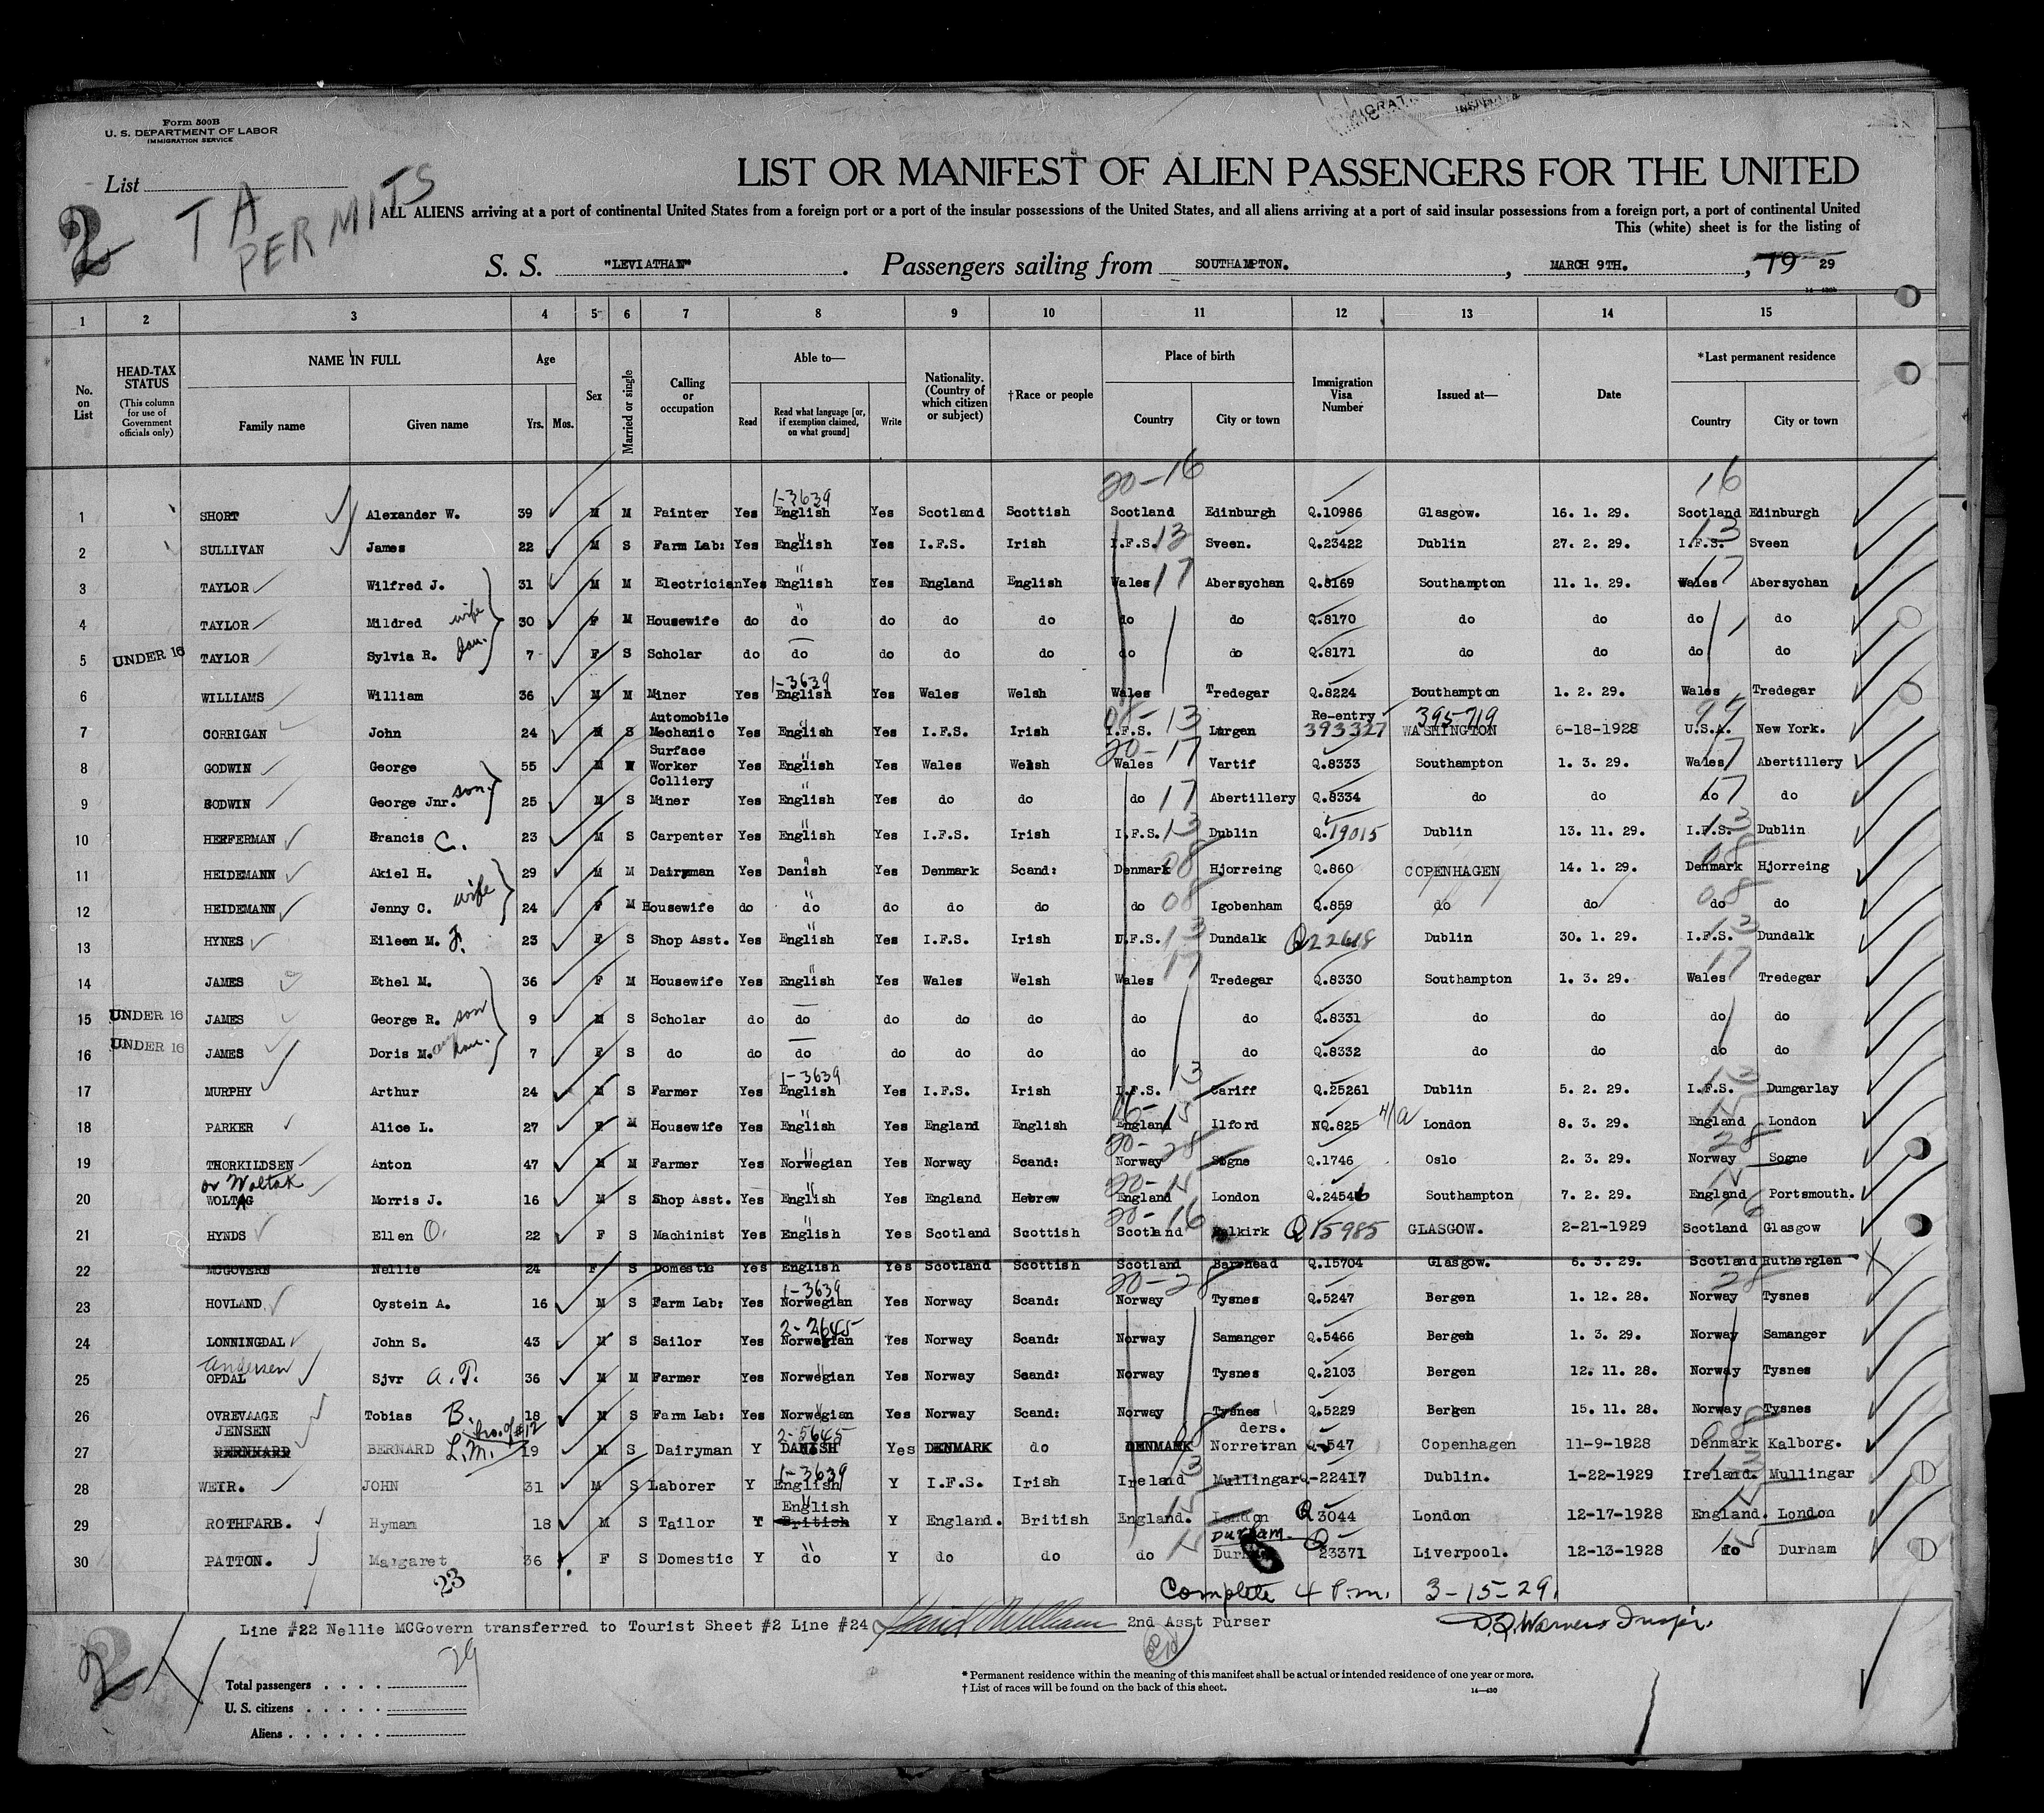 Form 500B
U. S. DEPARTMENT OF LABOR
IMMIGRATION SERVICE
List
2 T A PERMITS
LIST OR MANIFEST OF ALIEN PASSENGERS FOR THE UNITED
ALL ALIENS arriving at a port of continental United States from a foreign port or a port of the insular possessions of the United States, and all aliens arriving at a port of said insular possessions from a foreign port, a port of continental United
This (white) sheet is for the listing of
S. S. "LEVIATHAN". Passengers sailing from SOUTHAMPTON. , MARCH 9TH. , 19 29
1 2 3 4 5 6 7 8 9 10 11 12 13 14 15
No. on List HEAD-TAX STATUS (This column for use of Government officials only) NAME IN FULL Family name Given name Age Yrs. Mos. Sex Married or single Calling or occupation Able to— Read Read what language [or, if exemption claimed, on what ground] Write Nationality. (Country of which citizen or subject) †Race or people Place of birth Country City or town Immigration Visa Number Issued at— Date *Last permanent residence Country City or town
20-16 16
1-3639
1 SHORT Alexander W. 39 M M Painter Yes English Yes Scotland Scottish Scotland Edinburgh Q.10986 Glasgow. 16. 1. 29. Scotland Edinburgh
2 SULLIVAN James 22 M S Farm Lab: Yes English Yes I.F.S. Irish I.F.S. 13 Sveen. Q.23422 Dublin 27. 2. 29. I.F.S. 13 Sveen
3 TAYLOR Wilfred J. 31 M M Electrician Yes English Yes England English Wales 17 Abersychan Q.8169 Southampton 11. 1. 29. Wales 17 Abersychan
4 TAYLOR Mildred wife 30 F M Housewife do do do do do do do Q.8170 do do do do
5 UNDER 16 TAYLOR Sylvia R. dau. 7 F S Scholar do do do do do do do Q.8171 do do do do
1-3639
6 WILLIAMS William 36 M M Miner Yes English Yes Wales Welsh Wales Tredegar Q.8224 Southampton 1. 2. 29. Wales Tredegar
Automobile 08-13 Re-entry 395719 99
7 CORRIGAN John 24 M S Mechanic Yes English Yes I.F.S. Irish I.F.S. Lurgan 393327 WASHINGTON 6-18-1928 U.S.A. New York.
Surface 20-17 17
8 GODWIN George 55 M W Worker Yes English Yes Wales Welsh Wales Vartif Q.8333 Southampton 1. 3. 29. Wales Abertillery
Colliery
9 GODWIN George Jnr. son 25 M S Miner Yes English Yes do do do 17 Abertillery Q.8334 do do do 17 do
10 HEFFERMAN Francis C. 23 M S Carpenter Yes English Yes I.F.S. Irish I.F.S. 13 Dublin Q.19015 Dublin 13. 11. 29. I.F.S. 13 Dublin
11 HEIDEMANN Akiel H. 29 M M Dairyman Yes Danish Yes Denmark Scand: Denmark 08 Hjorreing Q.860 COPENHAGEN 14. 1. 29. Denmark 08 Hjorreing
12 HEIDEMANN Jenny C. wife 24 F M Housewife do do do do do do 08 Igobenham Q.859 do do do 08 do
13 HYNES Eileen M. F. 23 F S Shop Asst. Yes English Yes I.F.S. Irish I.F.S. 13 Dundalk Q22618 Dublin 30. 1. 29. I.F.S. 13 Dundalk
14 JAMES Ethel M. 36 F M Housewife Yes English Yes Wales Welsh Wales 17 Tredegar Q.8330 Southampton 1. 3. 29. Wales 17 Tredegar
15 UNDER 16 JAMES George R. son 9 M S Scholar do do do do do do do Q.8331 do do do do
16 UNDER 16 JAMES Doris M. dau. 7 F S do do do do do do do do Q.8332 do do do do
1-3639 13 13
17 MURPHY Arthur 24 M S Farmer Yes English Yes I.F.S. Irish I.F.S. Cariff Q.25261 Dublin 5. 2. 29. I.F.S. Dumgarlay
18 PARKER Alice L. 27 F M Housewife Yes English Yes England English England Ilford NQ.825 London 8. 3. 29. England London
20-28 28
19 THORKILDSEN Anton 47 M M Farmer Yes Norwegian Yes Norway Scand: Norway Sogne Q.1746 Oslo 2. 3. 29. Norway Sogne
or Woltak
20 WOLTAG Morris J. 16 M S Shop Asst. Yes English Yes England Hebrew England London Q.24546 Southampton 7. 2. 29. England Portsmouth.
20-16 16
21 HYNDS Ellen O. 22 F S Machinist Yes English Yes Scotland Scottish Scotland Falkirk Q15985 GLASGOW. 2-21-1929 Scotland Glasgow
22 MCGOVERN Nellie 24 F S Domestic Yes English Yes Scotland Scottish Scotland Barrhead Q.15704 Glasgow. 6. 3. 29. Scotland Rutherglen X
1-3639 20-28 28
23 HOVLAND Oystein A. 16 M S Farm Lab: Yes Norwegian Yes Norway Scand: Norway Tysnes Q.5247 Bergen 1. 12. 28. Norway Tysnes
2-2645
24 LONNINGDAL John S. 43 M S Sailor Yes Norwegian Yes Norway Scand: Norway Samanger Q.5466 Bergen 1. 3. 29. Norway Samanger
Andersen
25 OPDAL Sjvr A.T. 36 M M Farmer Yes Norwegian Yes Norway Scand: Norway Tysnes Q.2103 Bergen 12. 11. 28. Norway Tysnes
26 OVREVAAGE Tobias B. 18 M S Farm Lab: Yes Norwegian Yes Norway Scand: Norway Tysnes Q.5229 Bergen 15. 11. 28. Norway Tysnes
JENSEN bro. of #12 2-5645 08 ders. 08
27 BERNHARD BERNARD L.M. 19 M S Dairyman Y DANISH Yes DENMARK do DENMARK Norretran Q-547 Copenhagen 11-9-1928 Denmark Kalborg.
1-3639 13 13
28 WEIR. JOHN 31 M S Laborer Y English Y I.F.S. Irish Ireland Mullingar Q-22417 Dublin. 1-22-1929 Ireland. Mullingar
English
29 ROTHFARB. Hyman 18 M S Tailor Y British Y England. British England. London Q 3044 London 12-17-1928 England. London
Durham. Q
30 PATTON. Margaret 36 F S Domestic Y do Y do do do Durham 23371 Liverpool. 12-13-1928 do Durham
23
Complete 4 P.m. 3-15-29.
Line #22 Nellie MCGovern transferred to Tourist Sheet #2 Line #24 2nd Asst Purser
2
29
Total passengers
U. S. citizens
Aliens
* Permanent residence within the meaning of this manifest shall be actual or intended residence of one year or more.
† List of races will be found on the back of this sheet.
14—430